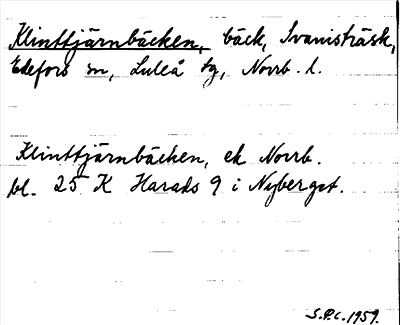 Klinttjärnbäcken, bäck, Svanisträsk,
Edefors sn, Luleå sg, Norrb. l.
Klinttjärnbäcken, ek Norrb.
bl. 25 K Harads 9 i Nyberget.
S.P.C. 1959.